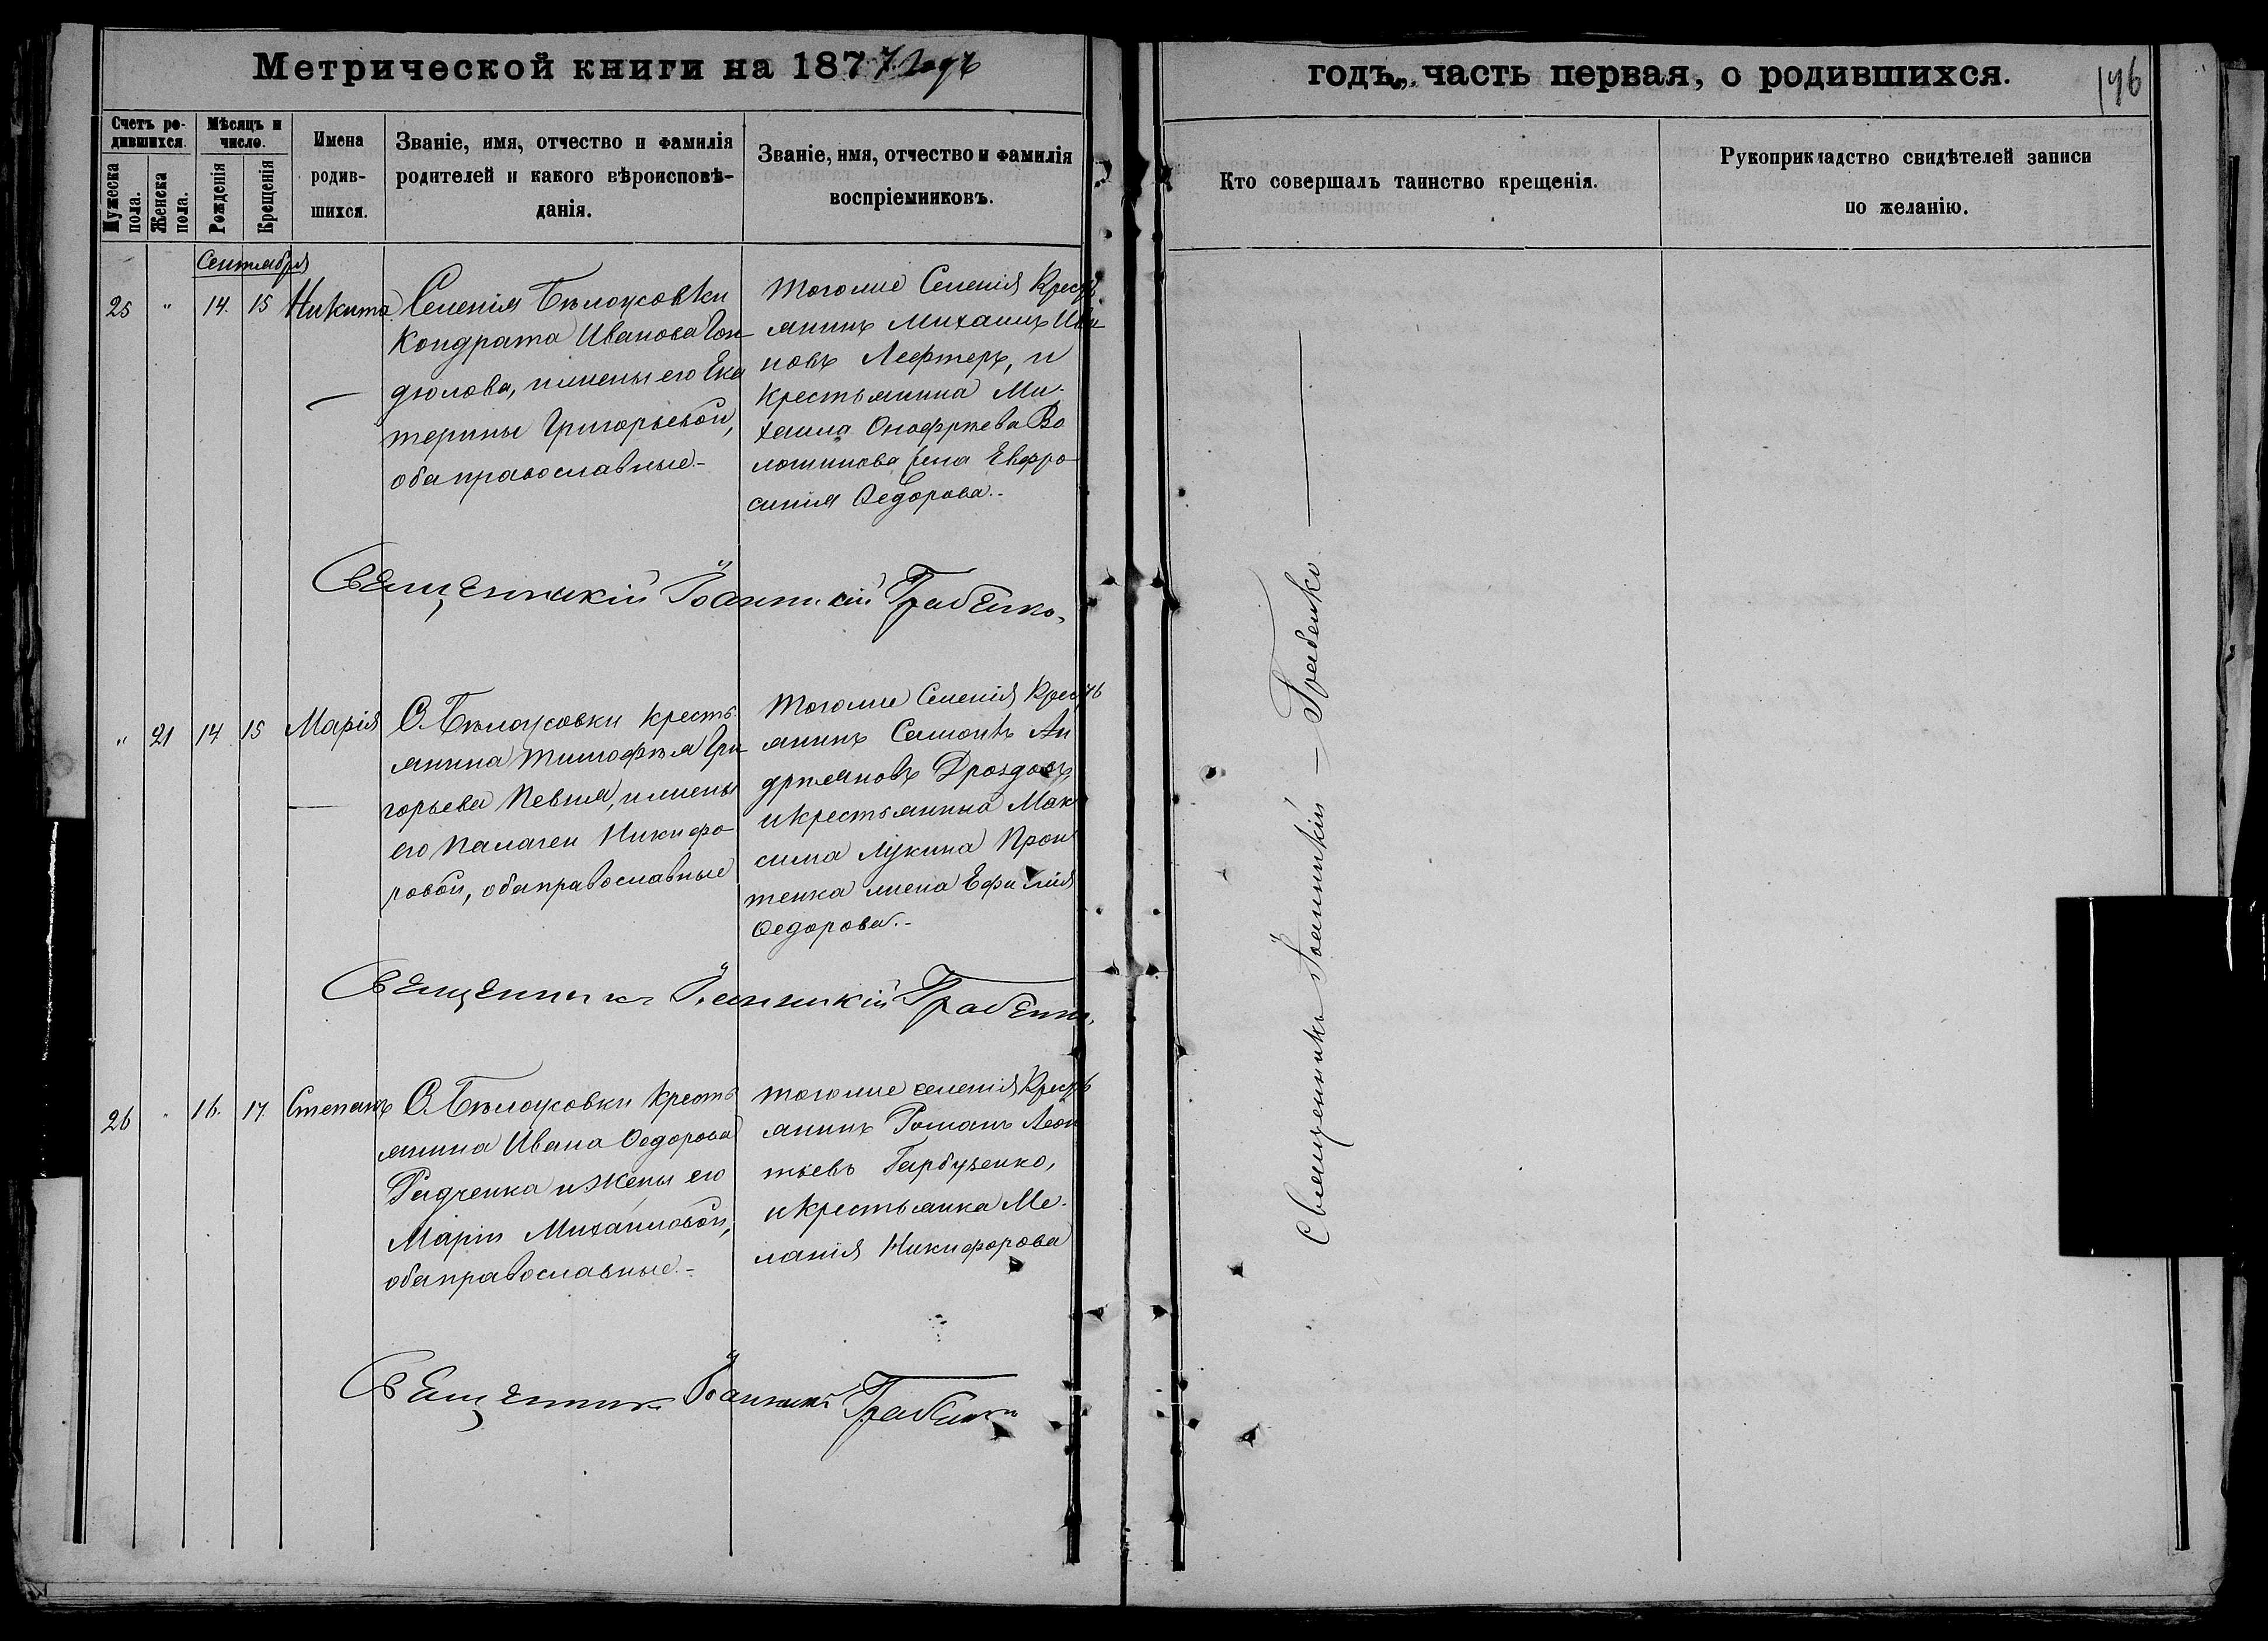 Метрической книги на 1877 годъ
годъ, часть первая, о родившихся.
146
Счетъ ро-
дившихся.
Мѣсяцъ и
число.
Мужеска пола.
Женска пола.
Рожденія
Крещенія
Имена
родив-
шихся.
Званіе, имя, отчество и фамилія
родителей и какого вѣроисповѣ-
данія.
Званіе, имя, отчество и фамилія
воспріемниковъ.
Кто совершалъ таинство крещенія.
Рукоприкладство свидѣтелей записи
по желанію.
Сентября
25 " 14. 15 Никита
Селенія Бѣлоусовки
Кондрата Иванова Гон-
дюлова, и жены его Ека
терины Григорьевой,
оба православные.-
Тогоже Селенія Кресть
янинъ Михаилъ Ива
новъ Лефтеръ, и
крестьянина Ми-
хаила Онофріева Во
лошинова жена Евфро-
синія Ѳедорова.-
Священникъ Іоанникій Грабенко.
" 21 14 15 Марія
С. Бѣлоусовки кресть
янина Тимофѣя Гри-
горьева Певня, и жены
его Палагеи Никифо-
ровой, оба православные
Тогоже Селенія Кресть
янинъ Самоилъ Ан
дріяновъ Дроздовъ,
и крестьянина Мак
сима Лукина Прон
тенка жена Ефимія
Ѳедорова.-
Священникъ Іоанникій Грабенко.
26 " 16. 17. Степанъ
С. Бѣлоусовки кресть
янина Ивана Ѳедорова
Радченка и жены его
Маріи Михайловой,
оба православные.-
Тогоже селенія Кресть
янинъ Романъ Леон
тьевъ Гарбузенко,
и крестьянка Ме-
ланія Никифорова
Священникъ Іоанникій Грабенко
Священникъ Іоанникій Грабенко